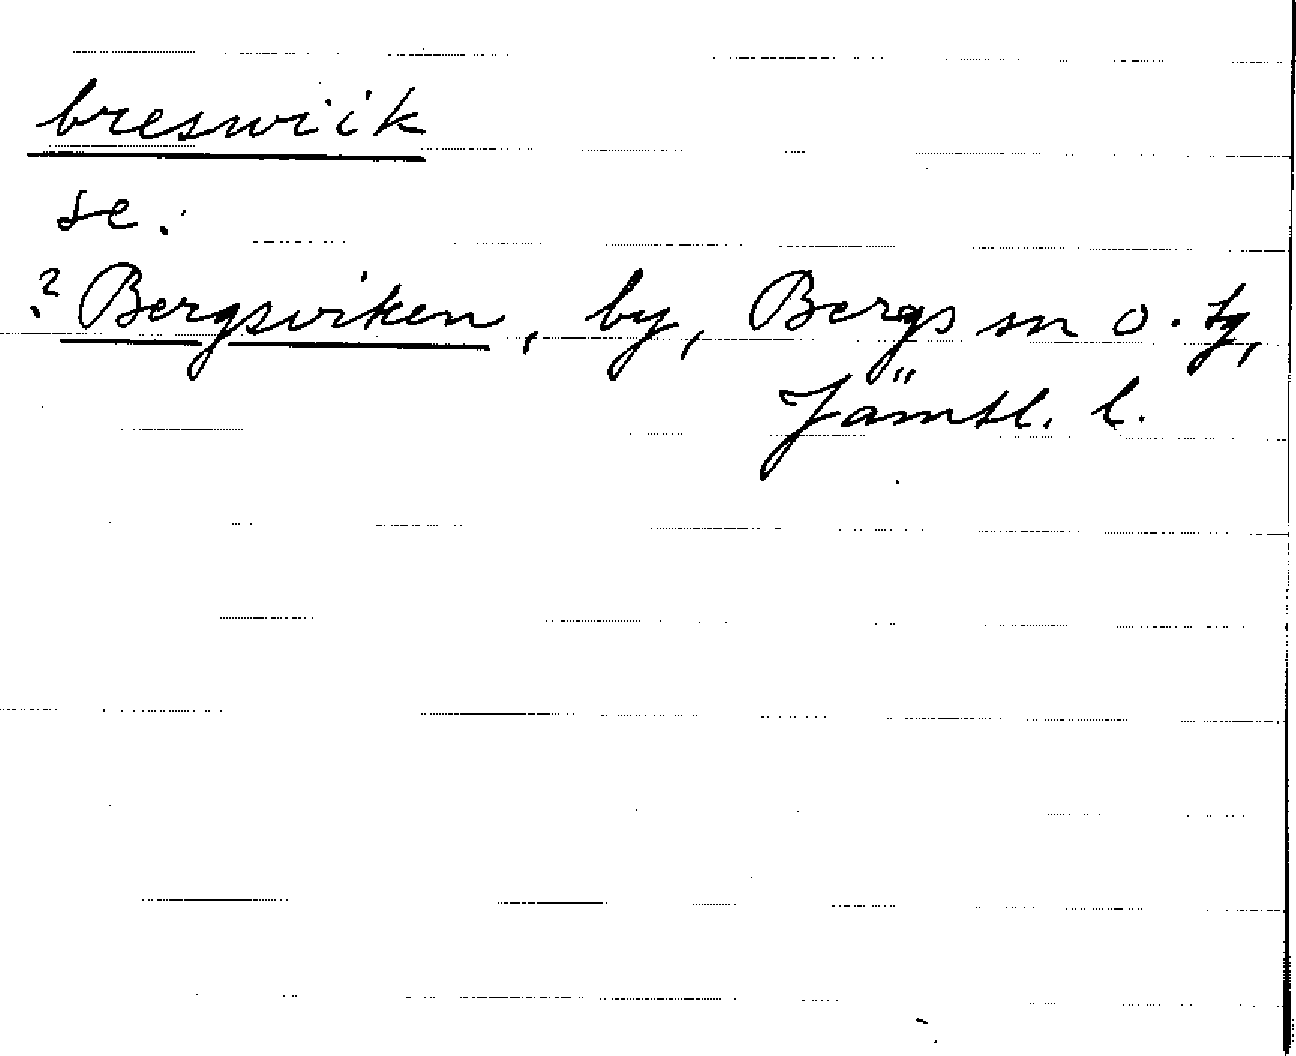 breswiik
se:
? Bergsviken, by, Bergs sn o. tg,
Jämtl. l.